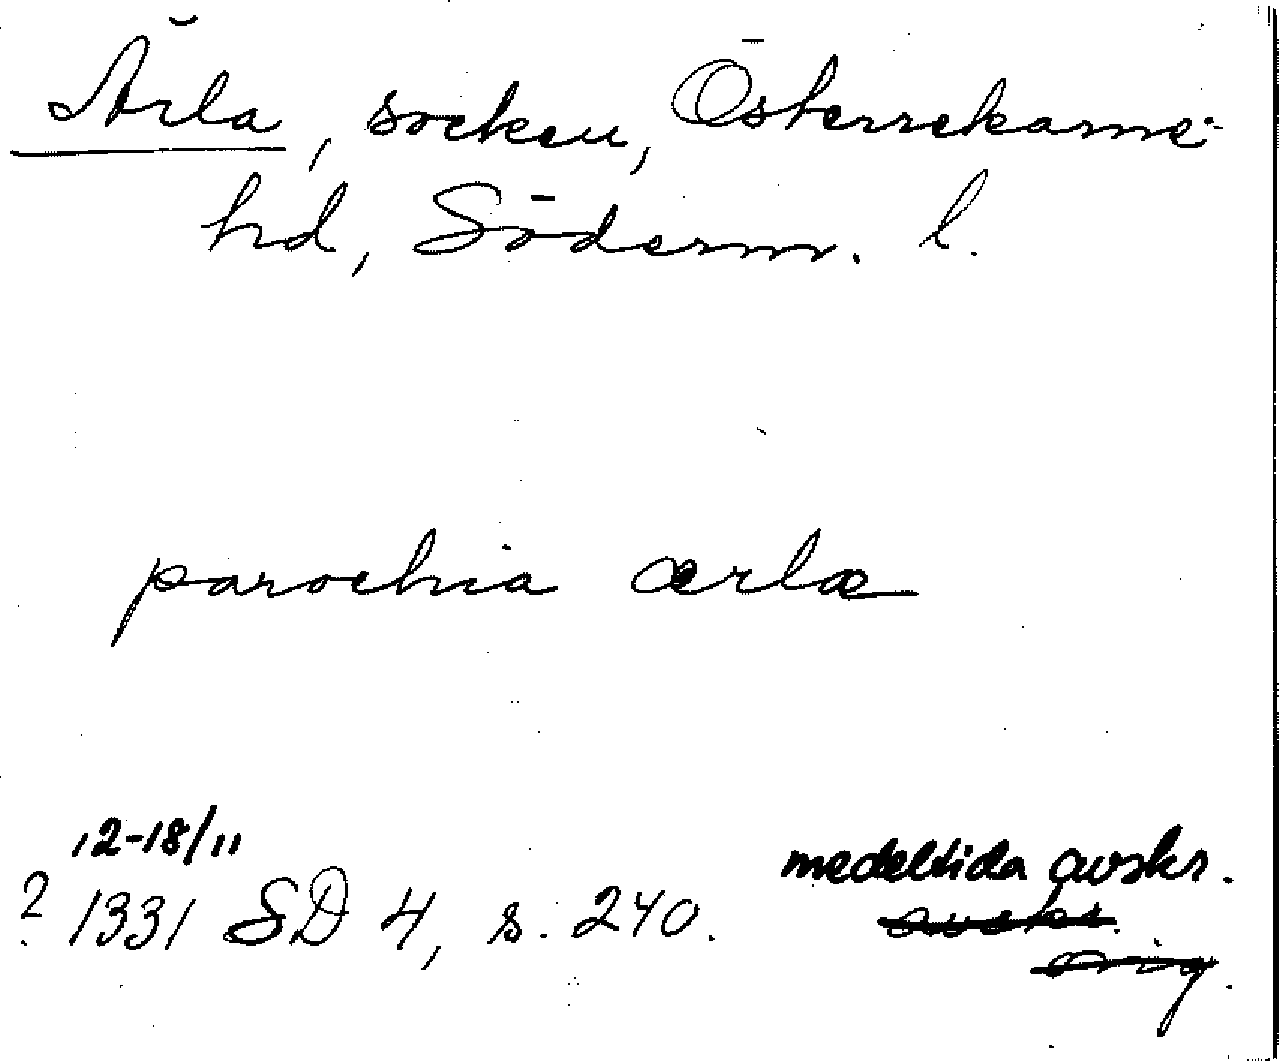 Ärla, socken, Österrekarne-
hd, Söderm. l.
parochia ærlæ
12-18/11
? 1331 SD 4, s. 240.
medeltida avskr.
avskr.
orig.